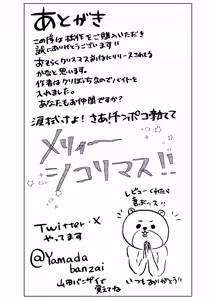 あとがき
この度は拙作をご購入いただき
誠にありがとうございます!!
おそらくクリスマスあたりにリリースされる
かなと思います。
作者はクリぼっちなのでバイトを
入れました。
あなたもお仲間ですか?
涙拭けよ! さあ!チンポコ勃てて
メリィー
シコリマス!!
レビューくれたら
喜ぶッス!!
Twitter・X
やってます
@Yamada
banzai
山田バンザイで
覚えてね
いつもありがとう!!